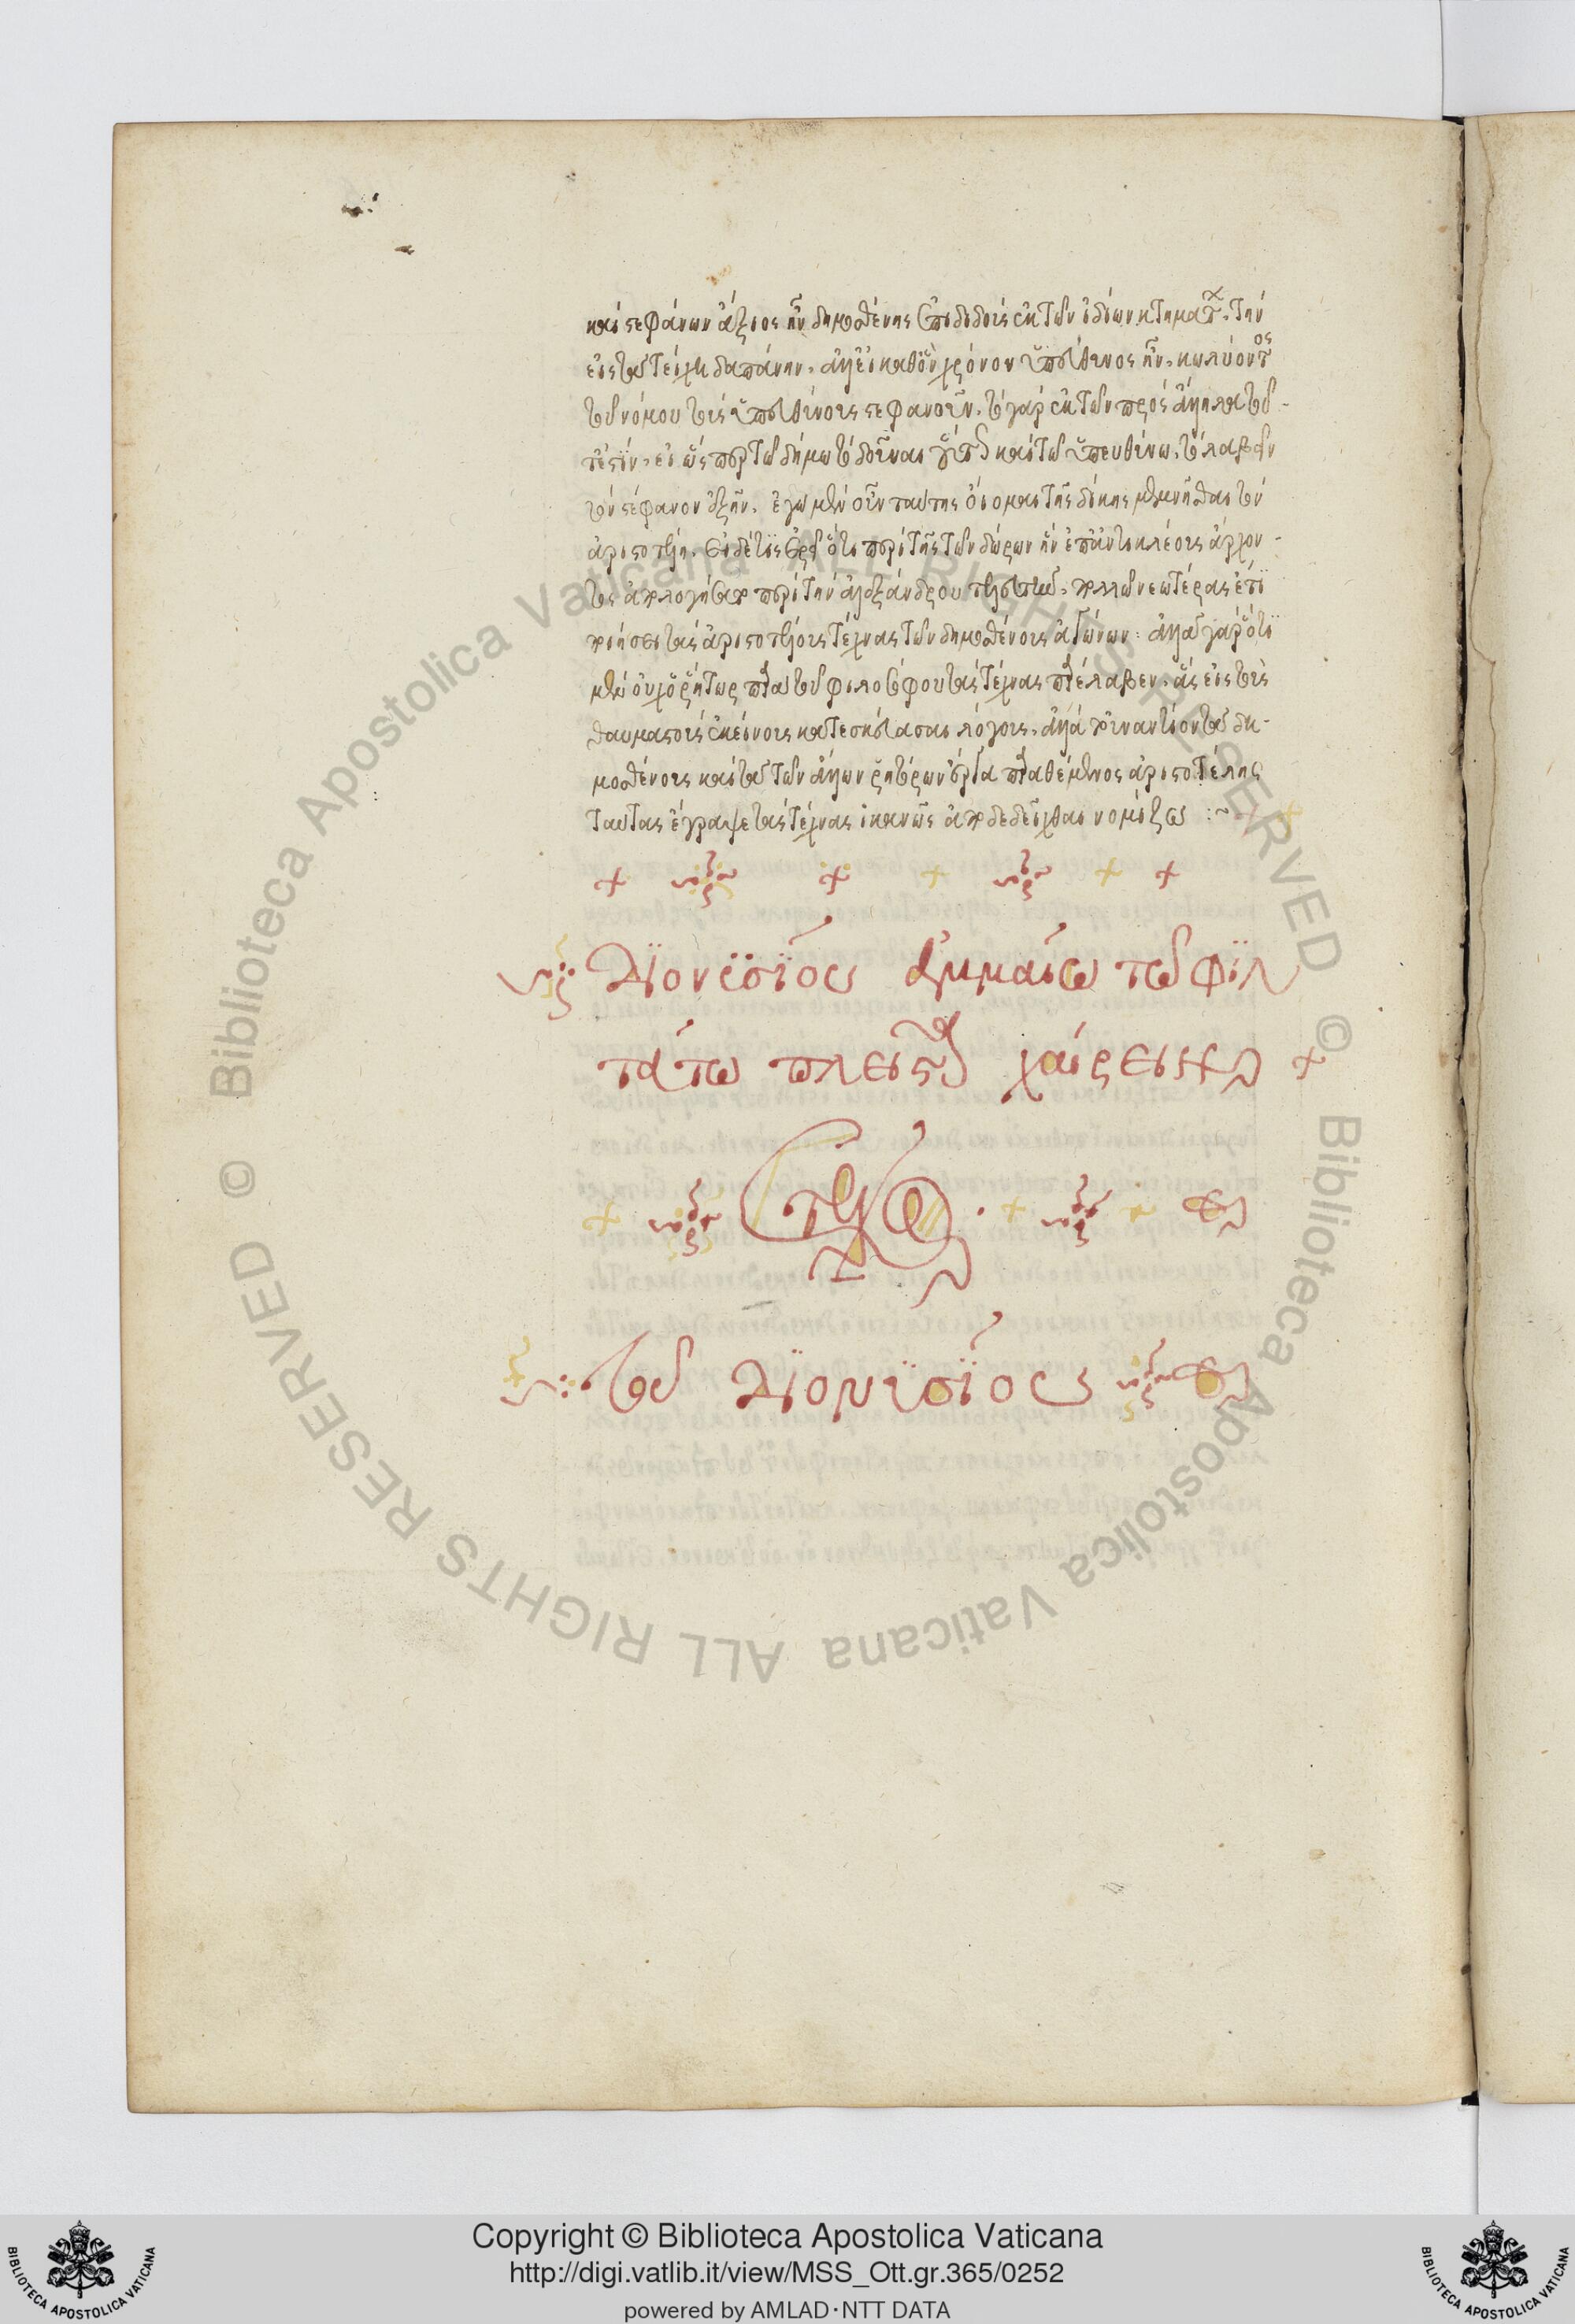 καὶ στεφάνων ἄξιος ἦν δημοσθένης ἐπιδιδοὺς ἐκ τῶν ἰδίων κτημάτων τὴν
εἰς τὰ τείχη δαπάνην. ἀλλ' εἰ καθ' ὃν χρόνον ὑπεύθυνος ἦν. κωλύοντος
τοῦ νόμου τοὺς ὑπευθύνους στεφανοῦν. τὸ γὰρ ἐκ τῶν πρὸς ἄλληλα τοῦ-
τ' ἐστὶν. εἰ ὥσπερ τῷ δήμῳ τὸ δοῦναι οὕτω καὶ τῷ ὑπευθύνω. τὸ λαβεῖν
τὸν στέφανον ἐξῆν. ἐγὼ μὲν οὖν ταύτης οἴομαι τῆς δίκης μεμνῆσθαι τὸν
ἀριστοτέλη. εἰ δέ τις ἐρεῖ ὅτι περὶ τῆς τῶν δώρων ἣν ἐπ' ἀντικλέους ἄρχον-
τος ἀπελογήσατο περὶ τὴν ἀλεξάνδρου τελευτὴν. πολλῶ νεωτέρας ἔτι
ποιήσει τὰς ἀριστοτέλους τέχνας τῶν δημοσθένους ἀγώνων: ἀλλὰ γὰρ ὅτι
μὲν οὐχ ὁ ῥήτωρ παρὰ τοῦ φιλοσόφου τὰς τέχνας παρέλαβεν. αἷς εἰς τοὺς
θαυμαστοὺς ἐκείνους κατεσκεύασαι λόγους. ἀλλὰ τοὐναντίον τὰ δη-
μοσθένους καὶ τὰ τῶν ἄλλων ῥητόρων ἔργα παραθέμενος ἀριστοτέλης
ταύτας ἔγραψε τὰς τέχνας ἱκανῶς ἀποδεδεῖχθαι νομίζω :~
Διονϋσίου ἀμμαίω τῶ φιλ
τάτω πλεῖστα χαίρειν
τέλος
τοῦ Διονϋσίου
Copyright © Biblioteca Apostolica Vaticana
http://digi.vatlib.it/view/MSS_Ott.gr.365/0252
powered by AMLAD·NTT DATA
BIBLIOTECA APOSTOLICA VATICANA
BIBLIOTECA APOSTOLICA VATICANA
© Biblioteca Apostolica Vaticana ALL RIGHTS RESERVED
© Biblioteca Apostolica Vaticana ALL RIGHTS RESERVED